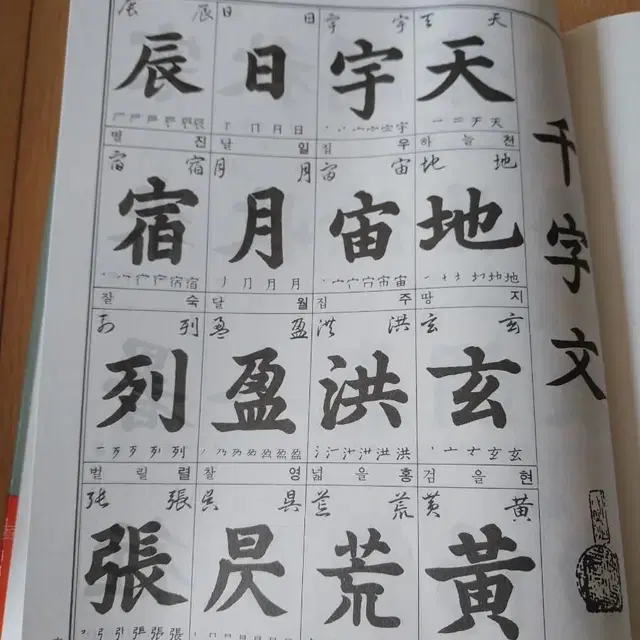 千字文
天 天
天
하늘 천
地 地
地
땅 지
玄 玄
玄
검을 현
黃 黃
黃
宇 宇
宇
집 우
宙 宙
宙
집 주
洪 洪
洪
넓을 홍
荒 荒
荒
日 日
日
일
月 月
月
달 월
盈 盈
盈
찰 영
昃
辰 辰
辰
별 진
宿 宿
宿
잘 숙
列 列
列
벌릴 렬
張 張
張